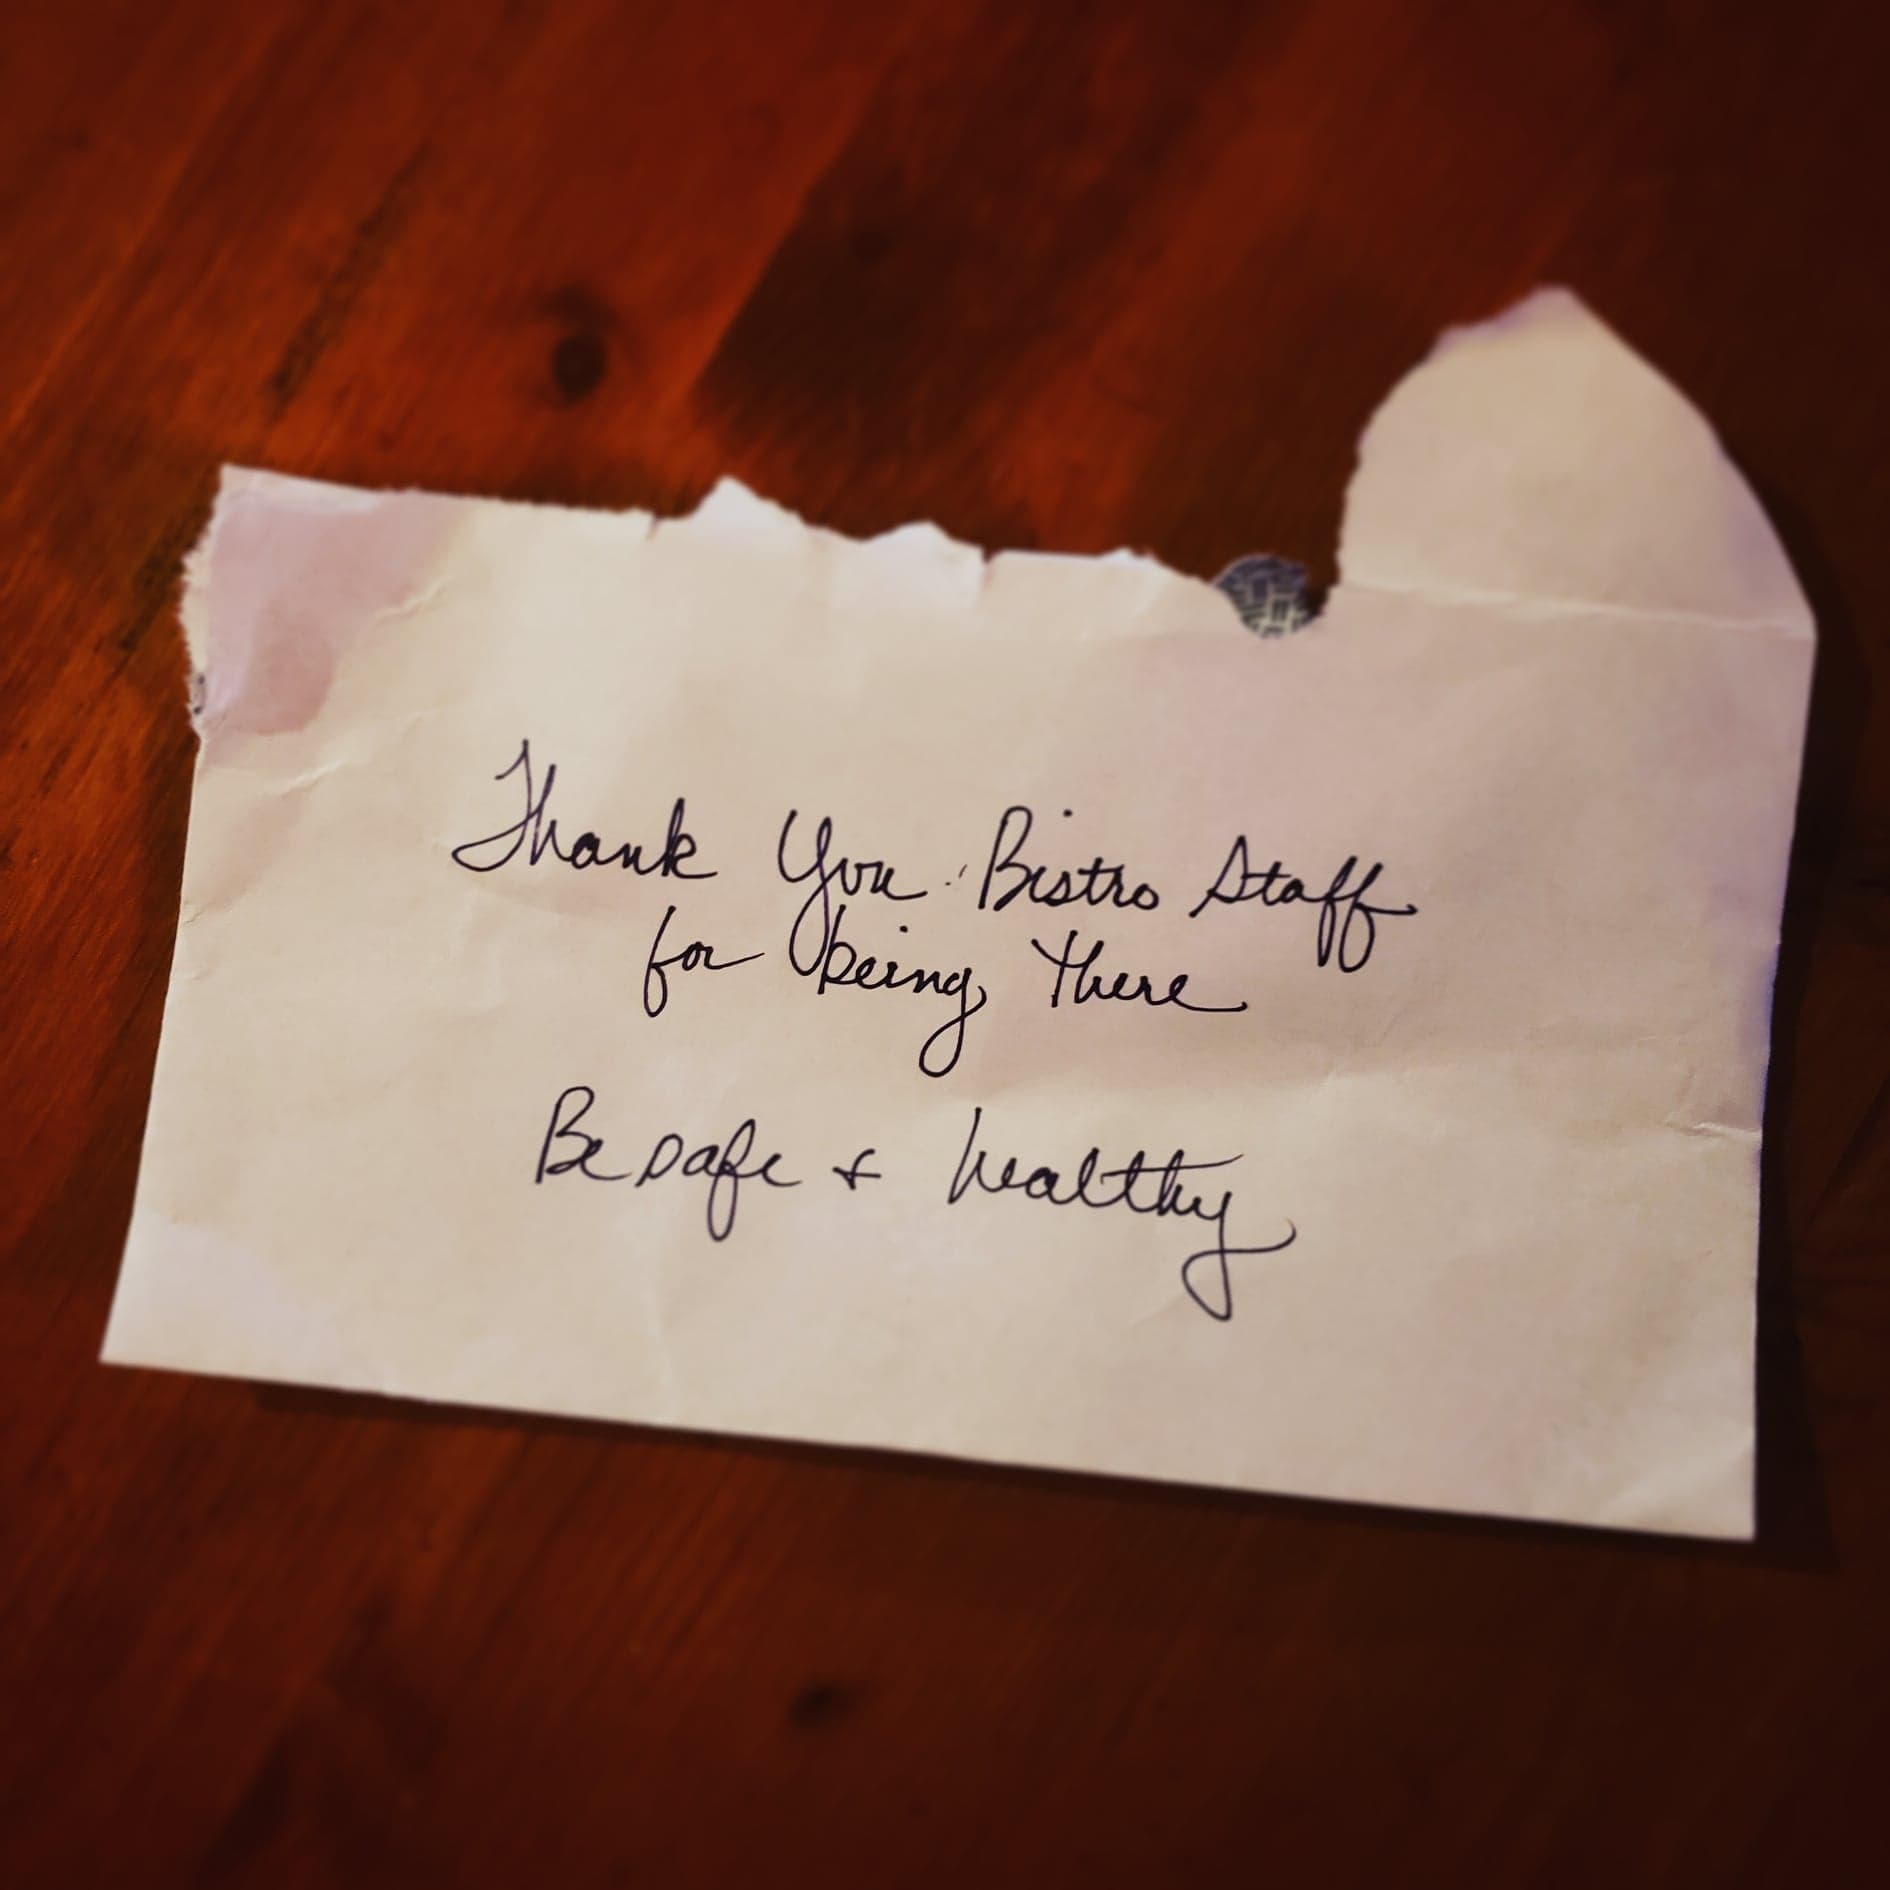 Thank You Bistro Staff
for being There
Be safe + healthy